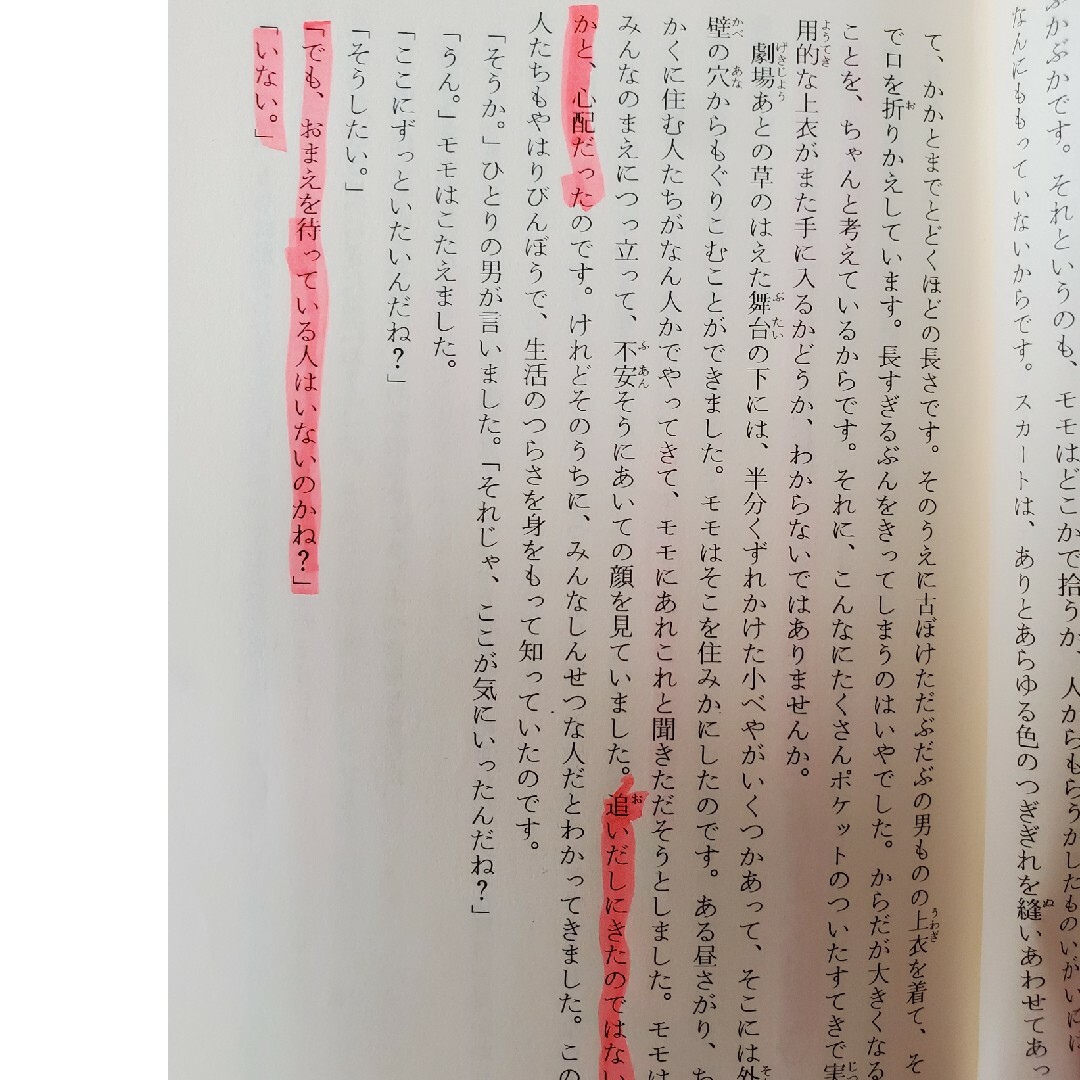 ぶかぶかです。それというのも、モモはどこかで拾うか、人からもらうかしたものいがいには
なんにももっていないからです。スカートは、ありとあらゆる色のつぎぎれを縫いあわせてあっ
て、かかとまでとどくほどの長さです。そのうえに古ぼけただぶだぶの男ものの上衣を着て、そ
で口を折りかえしています。長すぎるぶんをきってしまうのはいやでした。からだが大きくなる
ことを、ちゃんと考えているからです。それに、こんなにたくさんポケットのついたすてきで実
用的な上衣がまた手に入るかどうか、わからないではありませんか。
劇場あとの草のはえた舞台の下には、半分くずれかけた小べやがいくつかあって、そこには外
壁の穴からもぐりこむことができました。モモはそこを住みかにしたのです。ある昼さがり、ち
かくに住む人たちがなん人かでやってきて、モモにあれこれと聞きただそうとしました。モモは
みんなのまえにつっ立って、不安そうにあいての顔を見ていました。追いだしにきたのではない
かと、心配だったのです。けれどそのうちに、みんなしんせつな人だとわかってきました。この
人たちもやはりびんぼうで、生活のつらさを身をもって知っていたのです。
「そうか。」ひとりの男が言いました。「それじゃ、ここが気にいったんだね?」
「うん。」モモはこたえました。
「ここにずっといたいんだね?」
「そうしたい。」
「でも、おまえを待っている人はいないのかね?」
「いない。」